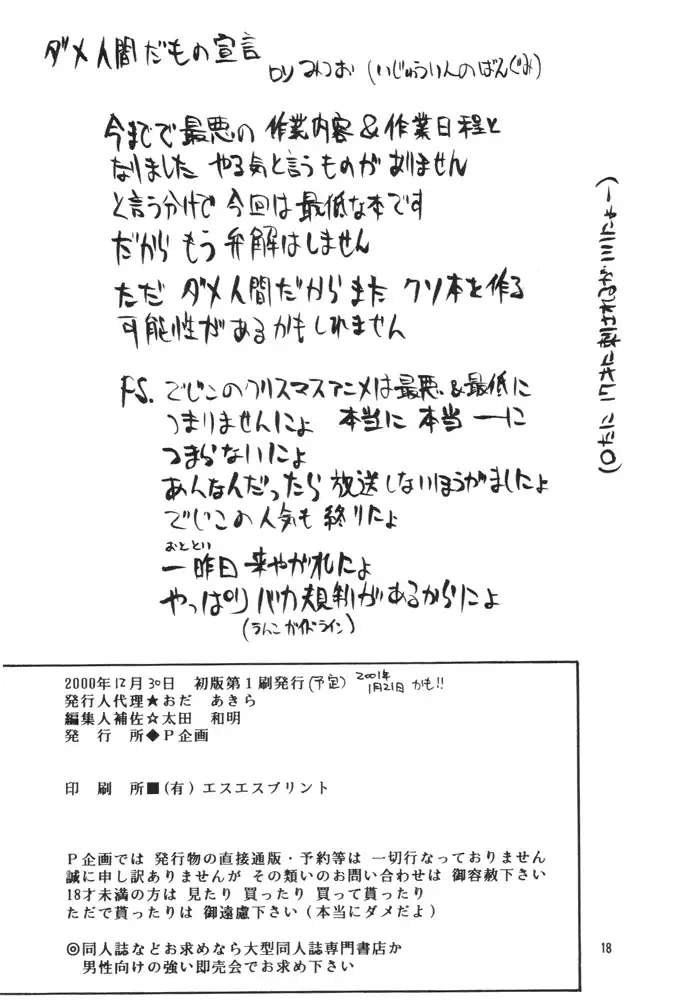 ダメ人間だもの宣言
by みつお (いじゅういんのばんぐみ)
今までで最悪の 作業内容 & 作業日程と
なりました やる気と言うものがありません
と言う分けで 今回は 最低な本です
だから もう 弁解はしません
ただ ダメ人間だから また クソ本を作る
可能性があるかもしれません
P.S. でじこのクリスマスアニメは最悪&最低に
つまりませんにょ 本当に 本当ーに
つまらないにょ
あんなんだったら 放送しないほうがましにょ
でじこの人気も 終りにょ
おととい
一昨日 来やがれにょ
やっぱり バカ規制があるからにょ
(うんこガイドライン)
2000年12月30日 初版第1刷発行(予定) 2001年
1月21日 かも!!
発行人代理★おだ あきら
編集人補佐☆太田 和明
発 行 所◆P企画
印 刷 所■(有) エスエスプリント
P企画では 発行物の直接通版・予約等は 一切行なっておりません
誠に申し訳ありませんが その類いのお問い合わせは 御容赦下さい
18才未満の方は 見たり 買ったり 買って貰ったり
ただで貰ったりは 御遠慮下さい (本当にダメだよ)
◎同人誌などお求めなら大型同人誌専門書店か
男性向けの強い即売会でお求め下さい
18